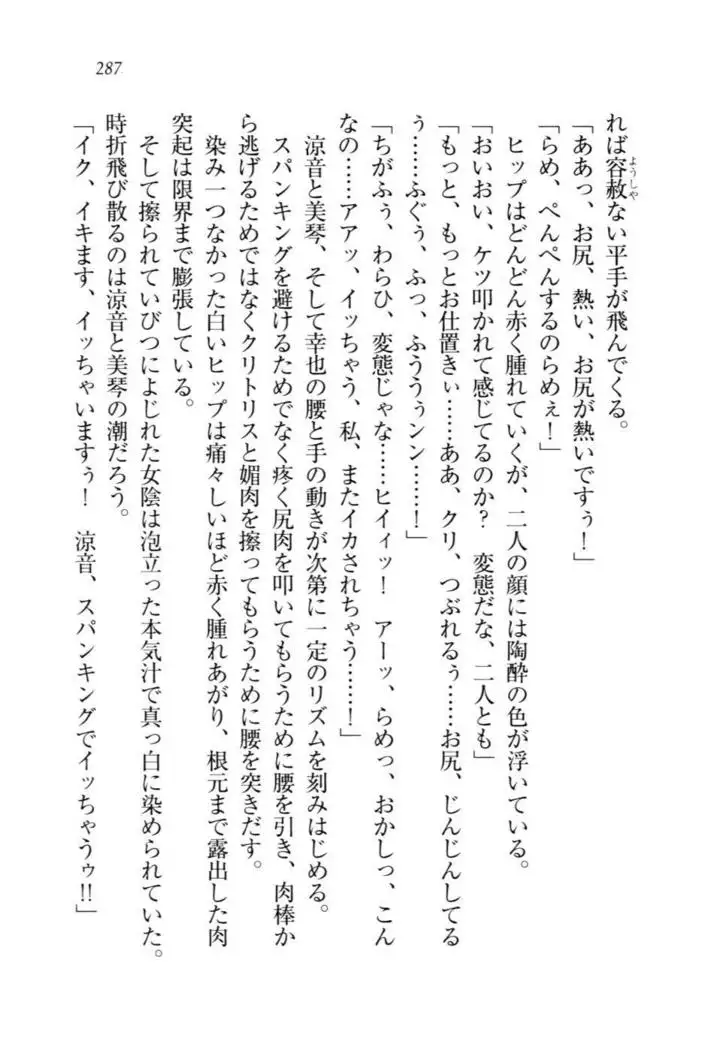 287
れば容赦ない平手が飛んでくる。
ようしや
「ああっ、お尻、熱い、お尻が熱いですぅ!」
「らめ、ぺんぺんするのらめぇ!」
ヒップはどんどん赤く腫れていくが、二人の顔には陶酔の色が浮いている。
「おいおい、ケツ叩かれて感じてるのか? 変態だな、二人とも」
「もっと、もっとお仕置きぃ……ああ、クリ、つぶれるぅ……お尻、じんじんしてる
ぅ……ふぐぅ、ふっ、ふううぅンン……!」
「ちがふぅ、わらひ、変態じゃな……ヒイィッ! アーッ、らめっ、おかしっ、こん
なの……アアッ、イッちゃう、私、またイカされちゃう……!」
涼音と美琴、そして幸也の腰と手の動きが次第に一定のリズムを刻みはじめる。
スパンキングを避けるためでなく疼く尻肉を叩いてもらうために腰を引き、肉棒か
ら逃げるためではなくクリトリスと媚肉を擦ってもらうために腰を突きだす。
染み一つなかった白いヒップは痛々しいほど赤く腫れあがり、根元まで露出した肉
突起は限界まで膨張している。
そして擦られていびつによじれた女陰は泡立った本気汁で真っ白に染められていた。
時折飛び散るのは涼音と美琴の潮だろう。
「イク、イキます、イッちゃいますぅ! 涼音、スパンキングでイッちゃうゥ!!」